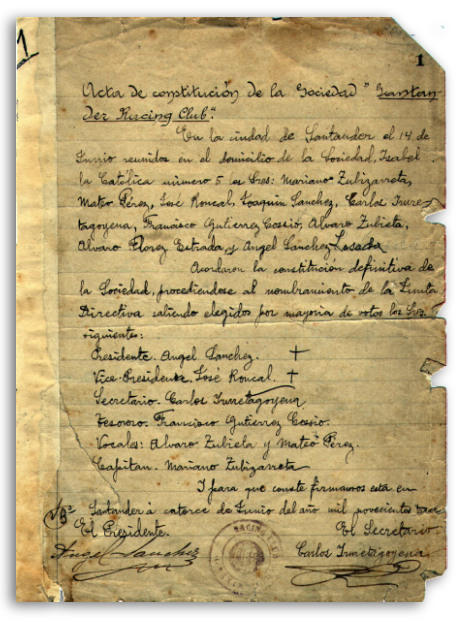 1
1
Acta de constitución de la Sociedad "Santan-
der Racing Club".
En la ciudad de Santander el 14 de
Junio reunidos en el domicilio de la Sociedad, Isabel
la Católica número 5 los Sres: Mariano Zubizarreta,
Mateo Pérez, José Roncal, Joaquin Sanchez, Carlos Irure-
tagoyena, Francisco Gutierrez Cossio, Alvaro Zubieta,
Alvaro Florez Estrada, y Angel Sanchez Losada
Acordaron la constitución definitiva de
la Sociedad, procediendose al nombramiento de la Junta
Directiva saliendo elegidos por mayoria de votos los Sres.
siguientes:
Presidente. Angel Sanchez. †
Vice-Presidente. José Roncal. †
Secretario. Carlos Iruretagoyena
Tesorero. Francisco Gutierrez Cossio.
Vocales: Alvaro Zubieta y Mateo Pérez.
Capitan. Mariano Zubizarreta
I para que conste firmamos esta en
Santander á catorce de Junio del año mil novecientos trece
Vº Bº
El Presidente. El Secretario
Angel Sanchez Carlos Iruretagoyena
RACING CLUB